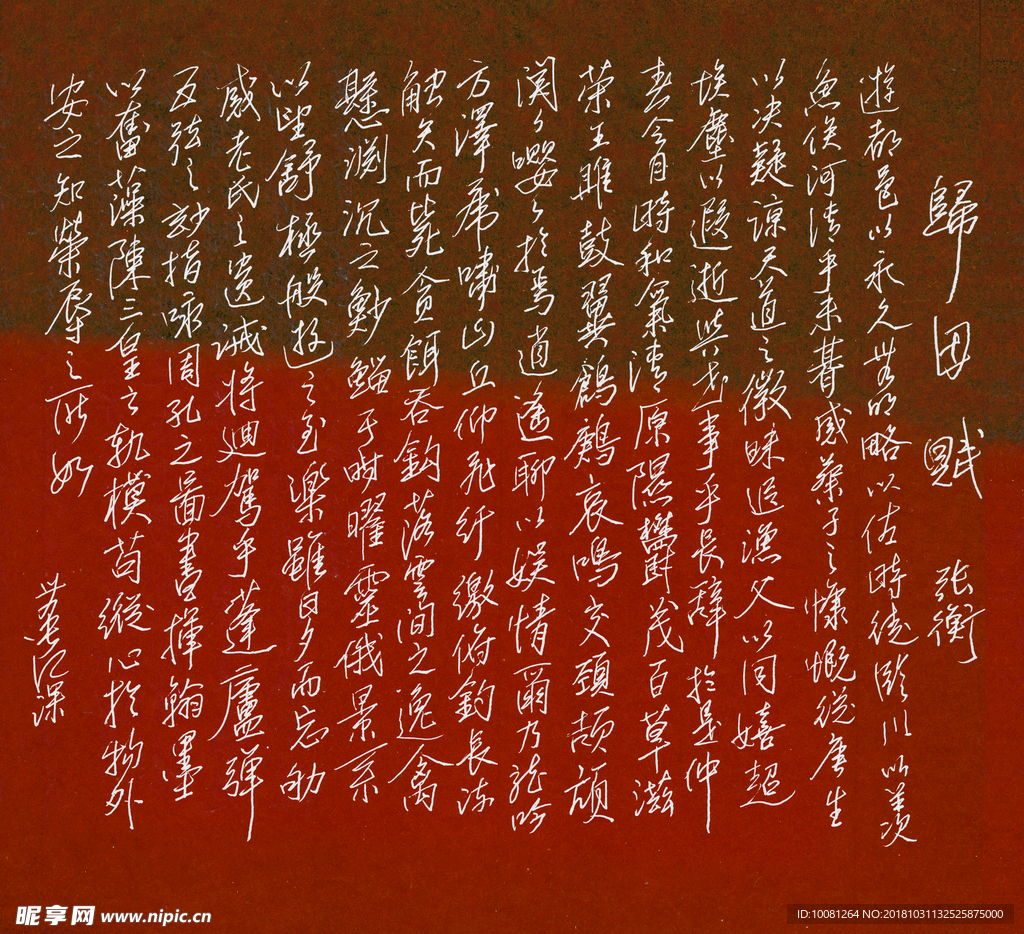 歸田賦
张衡
遊都邑以永久無明略以佐時徒臨川以羡
魚俟河清乎未朞感蔡子之慷慨從唐生
以决疑諒天道之微昧追漁父以同嬉超
埃塵以遐逝與世事乎長辭於是仲
春令月時和氣清原隰鬱茂百草滋
榮王雎鼓翼鶬鶊哀鳴交頸颉頏
関々嚶々於焉逍遥聊以娱情爾乃龍吟
方澤虎嘯山丘仰飛纤繳俯釣長流
触矢而斃貪餌吞鈎落雲間之逸禽
懸渊沉之鯋鰡于时曜靈俄景系
以望舒極般遊之至樂雖日夕而忘劬
感老氏之遺誡将迴駕乎蓬廬彈
五弦之妙指咏周孔之圖書揮翰墨
以奮藻陳三皇之軌模苟縱心於物外
安之知榮辱之所如
昵享网 www.nipic.cn
ID:10081264 NO:20181031132525875000